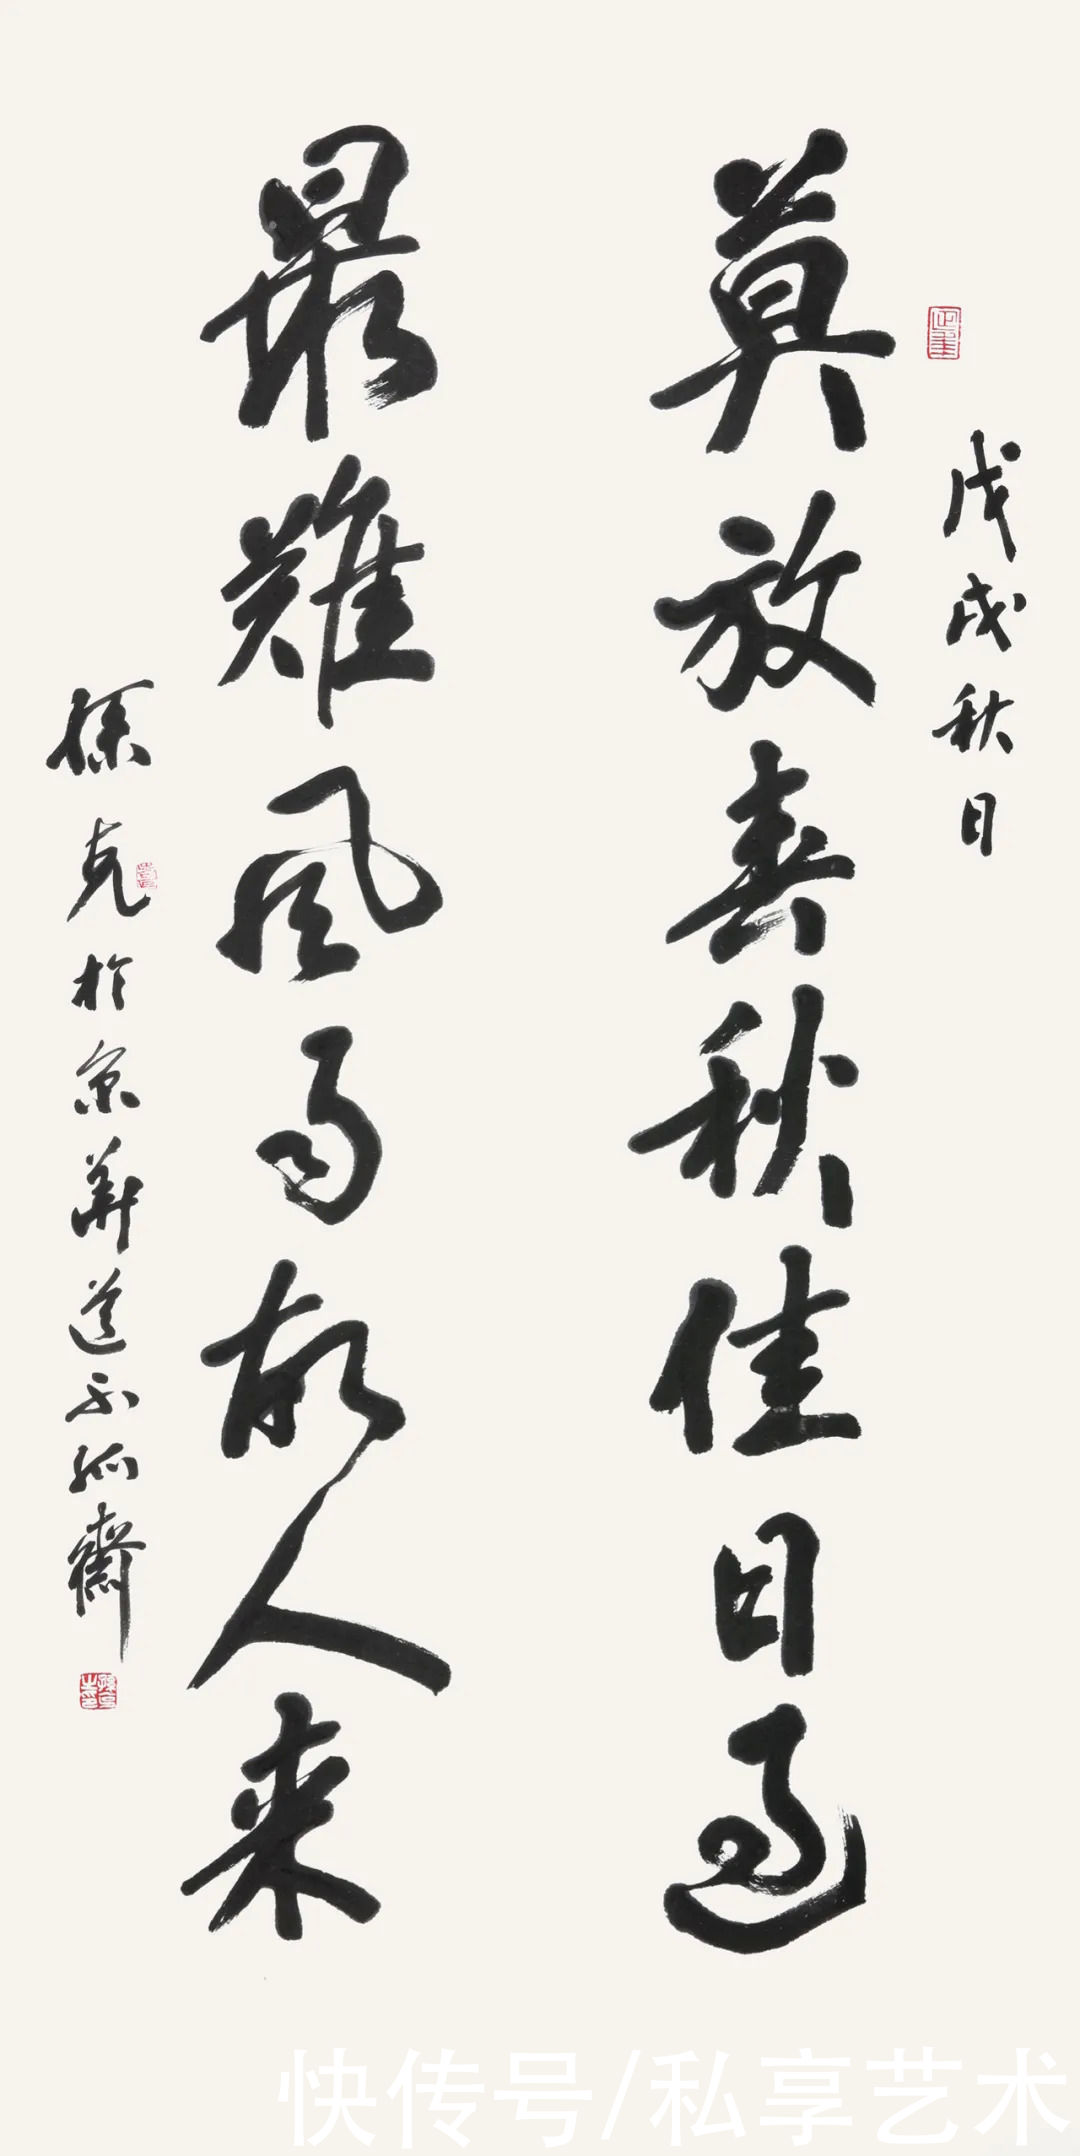 戊戌秋日
莫放春秋佳日過
最難風雨故人来
孫克於京華道不孤齋
快传号/私享艺术